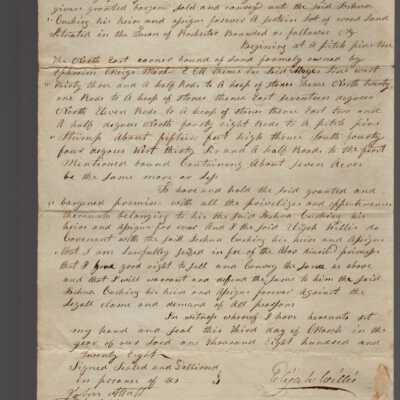 given granted bargon sold and convey unto the said Joshua
Cushing his heirs and assigns forever A sertin Lot of wood Land
Situated in the Town of Rochester Bounded as follows
Begining at A pitch pine tree
The North East corner bound of Land formely owned by
Ephraim thence in Said Line west
thirty three and A half Rods to A heap of stones thence North twenty
one Rods to A heap of stones thence East seventeen degrees
North Eleven Rods to A heap of stones thence East two and
A half degrees North forty eight Rods to A pitch pine
Stump About fifteen feet high thence South fourty
four degrees West thirty six and A half Rods to the first
Mentioned bound Containing About seven Acres
be the same more or Less
To have and hold the said granted and
bargened premises with all the privileges and appertenances
thereunto belonging to him the said Joshua Cushing his
heirs and assigns for ever And I the said Elijah Willis do
Covenant with the said Joshua Cushing his heirs and assigns
that I am Lawfully seized in fee of the premises
that I have good right to sell and Convey the same as above
and that I will warrant and defend the same to him the said
Joshua Cushing his heirs and assigns forever against the
Legall claims and demand of All persons
In witness whereof I have hereunto set
my hand and seal this Third day of March in the
year of our Lord one thousand Eight hundred and
Twenty Eight
Signed Sealed and Delivered
in presence of us
Elijah Willis